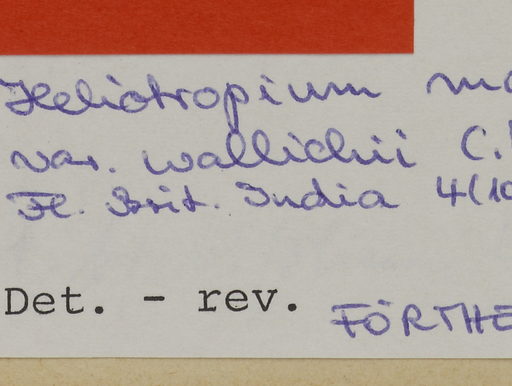 Heliotropium ma
var. wallichii C.
Fl. Brit. India 4(10
Det. - rev. FÖRTHE